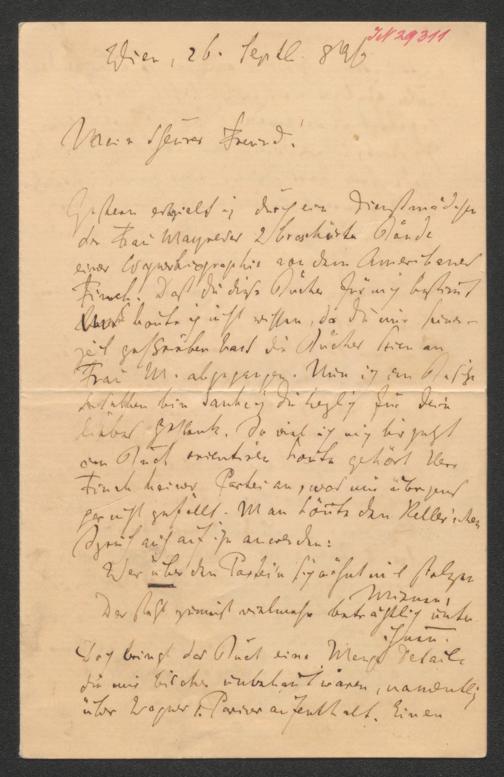 IN 29311
Wien, 26. Septb. 896
Mein theurer Freund!
Gestern erhielt ich durch ein Dienstmädchen
der Frau Mayreder 2 broschürte Bände
einer Wagnerbiographie von dem Amerikaner
Finck. Daß du diese Bücher für mich bestimmt
konnte ich nicht wissen, da du mir seiner-
zeit geschrieben hast die Bücher seien an
Frau M. abgegangen. Nun ich im Besitze
derselben bin danke ich Dir herzlich für Dein
liebes Geschenk. So viel ich mich bis jetzt
im Buch orientiren konnte gehört Herr
Finck keiner Partei an, was mir übrigens
gar nicht gefällt. Man könnte den Keller'schen
Spruch auch auf ihn anwenden:
Wer über den Partein sich wähnt mit stolzen
Mienen
Der steht zumeist vielmehr beträchtlich unter
ihnen.
Doch bringt das Buch eine Menge Details
die mir bisher unbekannt waren, namentlich
über Wagner's Pariser aufenthalt. Einen